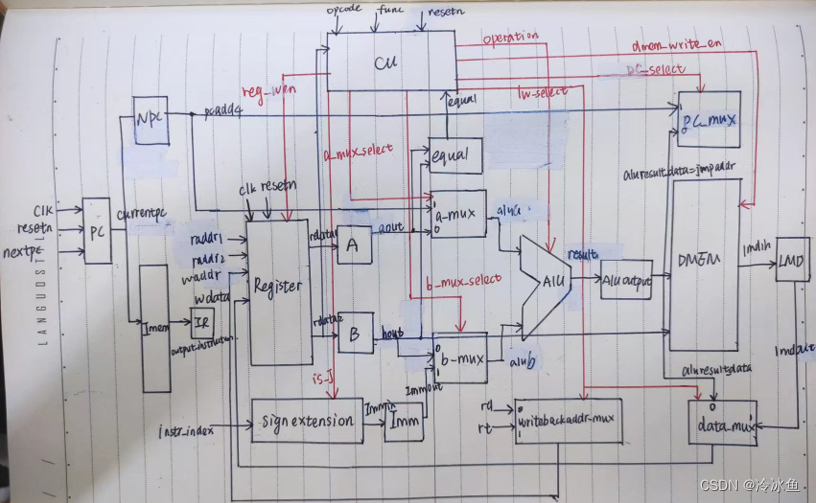 opcode
func
resetn
CU
operation
dmem_write_en
PC_select
reg_wen
lw_select
equal
Npc
pcadd4
a_mux_select
equal
PC_mux
1
0
aluresultdata=jmpaddr
clk resetn
clk
resetn
nextpc
PC
currentpc
raddr1
raddr2
waddr
wdata
Register
rdata1
A
aout
a-mux
1
0
alua
ALU
result
Aluoutput
DMEM
lmdin
LMD
b_mux_select
Imem
IR
output instruction
rdata2
B
bout
b-mux
0
1
alub
lmdout
is_J
Immout
aluresultdata
instr_index
Sign extension
Immin
Imm
rd
rt
0
1
writebackaddr_mux
0
1
data_mux
LANGUOSTYLE
CSDN @冷冰鱼